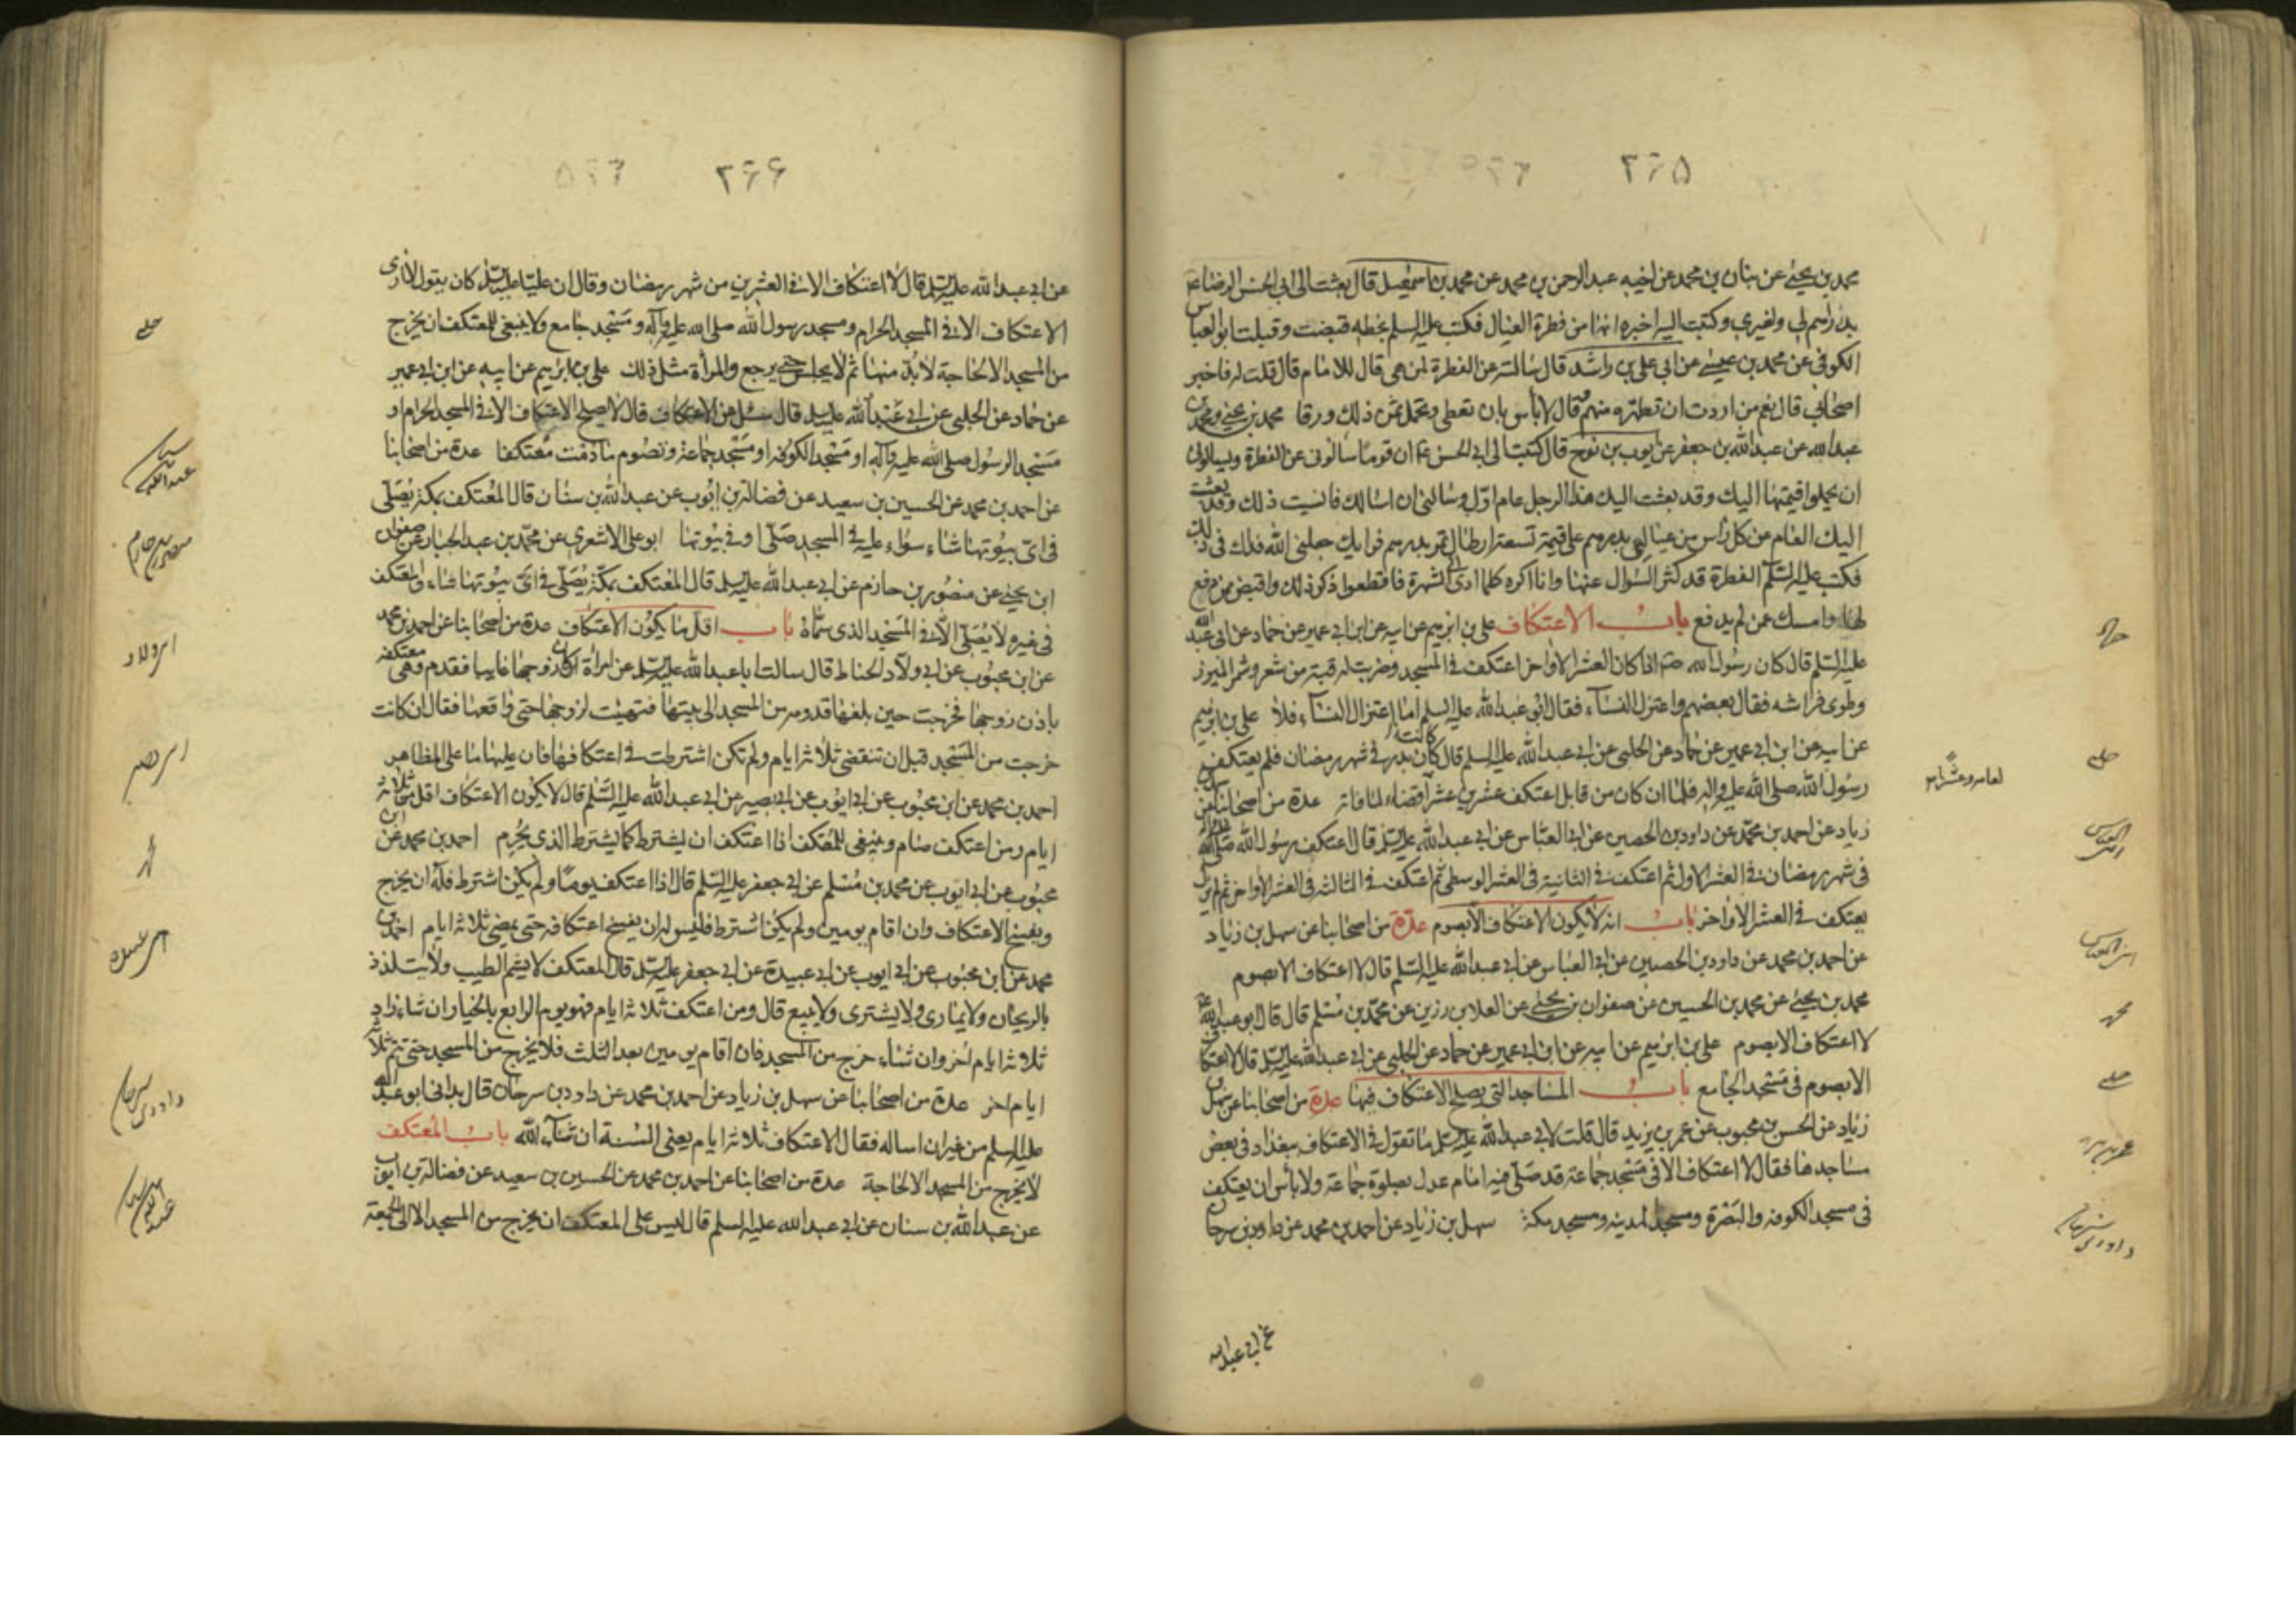 ۲۶۵
محمد بن يحيى عن بنان بن محمد عن اخيه عبد الرحمن بن محمد عن محمد بن اسمعيل قال بعثت الى ابى الحسن الرضا ع
بدراهم لى ولغيرى وكتبت اليه اخبره انها من فطرة العيال فكتب عليه السلم بخطه قبضت وقبلت ابو العباس
الكوفى عن محمد بن عيسى عن ابى على بن راشد قال سالته عن الفطرة لمن هى قال للامام قال قلت له فاخبر
اصحابى قال نعم من اردت ان تطهره منهم وقال لا بأس بان تعطى وتحمل ثمن ذلك ورقا محمد بن يحيى ومحمد بن
عبد الله عن عبد الله بن جعفر عن ايوب بن نوح قال كتبت الى ابى الحسن ع ان قوما سألونى عن الفطرة ويسالونى
ان يحملوا قيمتها اليك وقد بعثت اليك هذا الرجل عام اول وسالنى ان اسالك فانسيت ذلك وقد بعثت
اليك العام عن كل رأس من عيالى بدرهم على قيمة تسعة ارطال تمر بدرهم فرايك جعلنى الله فداك فى ذلك
فكتب عليه السلم الفطرة قد كثر السؤال عنها وانا اكره كلما ادى الى الشهرة فاقطعوا ذكر ذلك واقبض ممن دفع
لها وامسك عمن لم يدفع باب الاعتكاف على بن ابرهيم عن ابيه عن ابن ابى عمير عن حماد عن ابى عبد الله
عليه السلم قال كان رسول الله ص اذا كان العشر الاواخر اعتكف فى المسجد وضربت له قبة من شعر وشمر الميزر
وطوى فراشه فقال بعضهم واعتزل النساء فقال ابو عبد الله عليه السلم اما اعتزال النساء فلا على بن ابرهيم
عن ابيه عن ابن ابى عمير عن حماد عن الحلبى عن ابى عبد الله عليه السلم قال كانت بدر فى شهر رمضان فلم يعتكف
رسول الله صلى الله عليه واله فلما ان كان من قابل اعتكف عشرين عشرا قضاء لما فاته عدة من اصحابنا عن سهل بن
زياد عن احمد بن محمد عن داود بن الحصين عن ابى العباس عن ابى عبد الله عليه السلم قال اعتكف رسول الله صلى الله عليه واله
فى شهر رمضان فى العشر الاول ثم اعتكف فى الثانية فى العشر الوسطى ثم اعتكف فى الثالثة فى العشر الاواخر ثم لم يزل
يعتكف فى العشر الاواخر باب انه لا يكون الاعتكاف الا بصوم عدة من اصحابنا عن سهل بن زياد
عن احمد بن محمد عن داود بن الحصين عن ابى العباس عن ابى عبد الله عليه السلم قال لا اعتكاف الا بصوم
محمد بن يحيى عن محمد بن الحسين عن صفوان بن يحيى عن العلا بن رزين عن محمد بن مسلم قال قال ابو عبد الله ع
لا اعتكاف الا بصوم على بن ابرهيم عن ابيه عن ابن ابى عمير عن حماد عن الحلبى عن ابى عبد الله عليه السلم قال لا اعتكاف
الا بصوم فى مسجد الجامع باب المساجد التى يصلح الاعتكاف فيها عدة من اصحابنا عن سهل بن
زياد عن الحسن بن محبوب عن عمر بن يزيد قال قلت لابى عبد الله عليه السلم ما تقول فى الاعتكاف ببغداد فى بعض
مساجدها فقال لا اعتكاف الا فى مسجد جماعة قد صلى فيه امام عدل بصلوة جماعة ولا بأس ان يعتكف
فى مسجد الكوفه والبصرة ومسجد المدينه ومسجد مكة سهل بن زياد عن احمد بن محمد عن داود بن سرحان
عن ابى عبد الله
حماد
حلبى
ابى العباس
ابى العباس
محمد
حلبى
عمر بن يزيد
داود بن سرحان
۲۶۶
عن ابى عبد الله عليه السلم قال لا اعتكاف الا فى العشرين من شهر رمضان وقال ان عليا عليه السلم كان يقول لا ارى
الاعتكاف الا فى المسجد الحرام ومسجد رسول الله صلى الله عليه واله ومسجد جامع ولا ينبغى للمعتكف ان يخرج
من المسجد الا لحاجة لا بد منها ثم لا يجلس حتى يرجع والمرأة مثل ذلك على بن ابرهيم عن ابيه عن ابن ابى عمير
عن حماد عن الحلبى عن ابى عبد الله عليه السلم قال سئل عن الاعتكاف قال لا يصلح الاعتكاف الا فى المسجد الحرام او
مسجد الرسول صلى الله عليه واله او مسجد الكوفه او مسجد جماعة وتصوم ما دمت معتكفا عدة من اصحابنا
عن احمد بن محمد عن الحسين بن سعيد عن فضالة بن ايوب عن عبد الله بن سنان قال المعتكف بمكة يصلى
فى اى بيوتها شاء سواء عليه فى المسجد صلى او فى بيوتها ابو على الاشعرى عن محمد بن عبد الجبار عن صفوان
ابن يحيى عن منصور بن حازم عن ابى عبد الله عليه السلم قال المعتكف بمكة يصلى فى اى بيوتها شاء والمعتكف
فى غيره لا يصلى الا فى المسجد الذى سماه باب اقل ما يكون الاعتكاف عدة من اصحابنا عن احمد بن محمد
عن ابن محبوب عن ابى ولاد الحناط قال سالت ابا عبد الله عليه السلم عن امرأة كان زوجها غايبا فقدم وهى معتكفه
باذن زوجها فخرجت حين بلغها قدومه من المسجد الى بيتها فتهيئت لزوجها حتى واقعها فقال ان كانت
خرجت من المسجد قبل ان تنقضى ثلاثة ايام ولم تكن اشترطت فى اعتكافها فان عليها ما على المظاهر
احمد بن محمد عن ابن محبوب عن ابى ايوب عن ابى بصير عن ابى عبد الله عليه السلم قال لا يكون الاعتكاف اقل من ثلاثة
ايام ومن اعتكف صام وينبغى للمعتكف اذا اعتكف ان يشترط كما يشترط الذى يحرم احمد بن محمد عن ابن
محبوب عن ابى ايوب عن محمد بن مسلم عن ابى جعفر عليه السلم قال اذا اعتكف يوما ولم يكن اشترط فله ان يخرج
ويفسخ الاعتكاف وان اقام يومين ولم يكن اشترط فليس له ان يفسخ اعتكافه حتى يمضى ثلاثة ايام احمد بن
محمد عن ابن محبوب عن ابى ايوب عن ابى عبيدة عن ابى جعفر عليه السلم قال المعتكف لا يشم الطيب ولا يتلذذ
بالريحان ولا يمارى ولا يشترى ولا يبيع قال ومن اعتكف ثلاثة ايام فهو يوم الرابع بالخيار ان شاء زاد
ثلاثة ايام اخر وان شاء خرج من المسجد فان اقام يومين بعد الثلث فلا يخرج من المسجد حتى تتم ثلاثة
ايام اخر عدة من اصحابنا عن سهل بن زياد عن احمد بن محمد عن داود بن سرحان قال بدانى ابو عبد الله
عليه السلم من غير ان اساله فقال الاعتكاف ثلاثة ايام يعنى السنة ان شاء الله باب المعتكف
لا يخرج من المسجد الا لحاجة عدة من اصحابنا عن احمد بن محمد عن الحسين بن سعيد عن فضالة بن ايوب
عن عبد الله بن سنان عن ابى عبد الله عليه السلم قال ليس على المعتكف ان يخرج من المسجد الا الى الجمعة
حلبى
منصور بن حازم
ابى ولاد
ابى بصير
داود بن سرحان